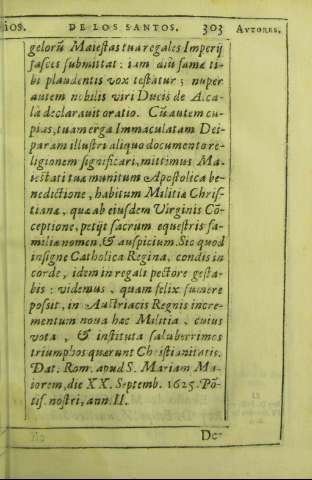 ños. DE LOS SANTOS. 303 AVTORES.
gelorũ Maiestas tua regales Imperij
fasces submittat: iam diũ fama ti-
bi plaudentis vox testatur; nuper
autem nobilis viri Ducis de A.ca-
la declarauit oratio. Cũ autem cu-
pias, tuam erga Immaculatam Dei-
param illustri aliquo documento re-
ligionem significari, mittimus Ma-
iestati tuæ munitum Apostolica be-
nedictione, habitum Militiæ Chris-
tianæ, quæ ab eiusdem Virginis Cõ-
ceptione, petijt sacrum equestris fa-
miliæ nomen, & auspicium. Sic quod
insigne Catholica Regina, condis in
corde, idem in regali pectore gesta-
bis: videmus, quam felix fumere
possit, in Austriacis Regnis incre-
mentum noua hæc Militia, cuius
vota, & instituta saluberrimos
triumphos quærunt Christianitatis.
Dat. Rom. apud S. Mariam Ma-
iorem, die XX. Septemb. 1625. Põ-
tif. nostri, ann. II.
De-